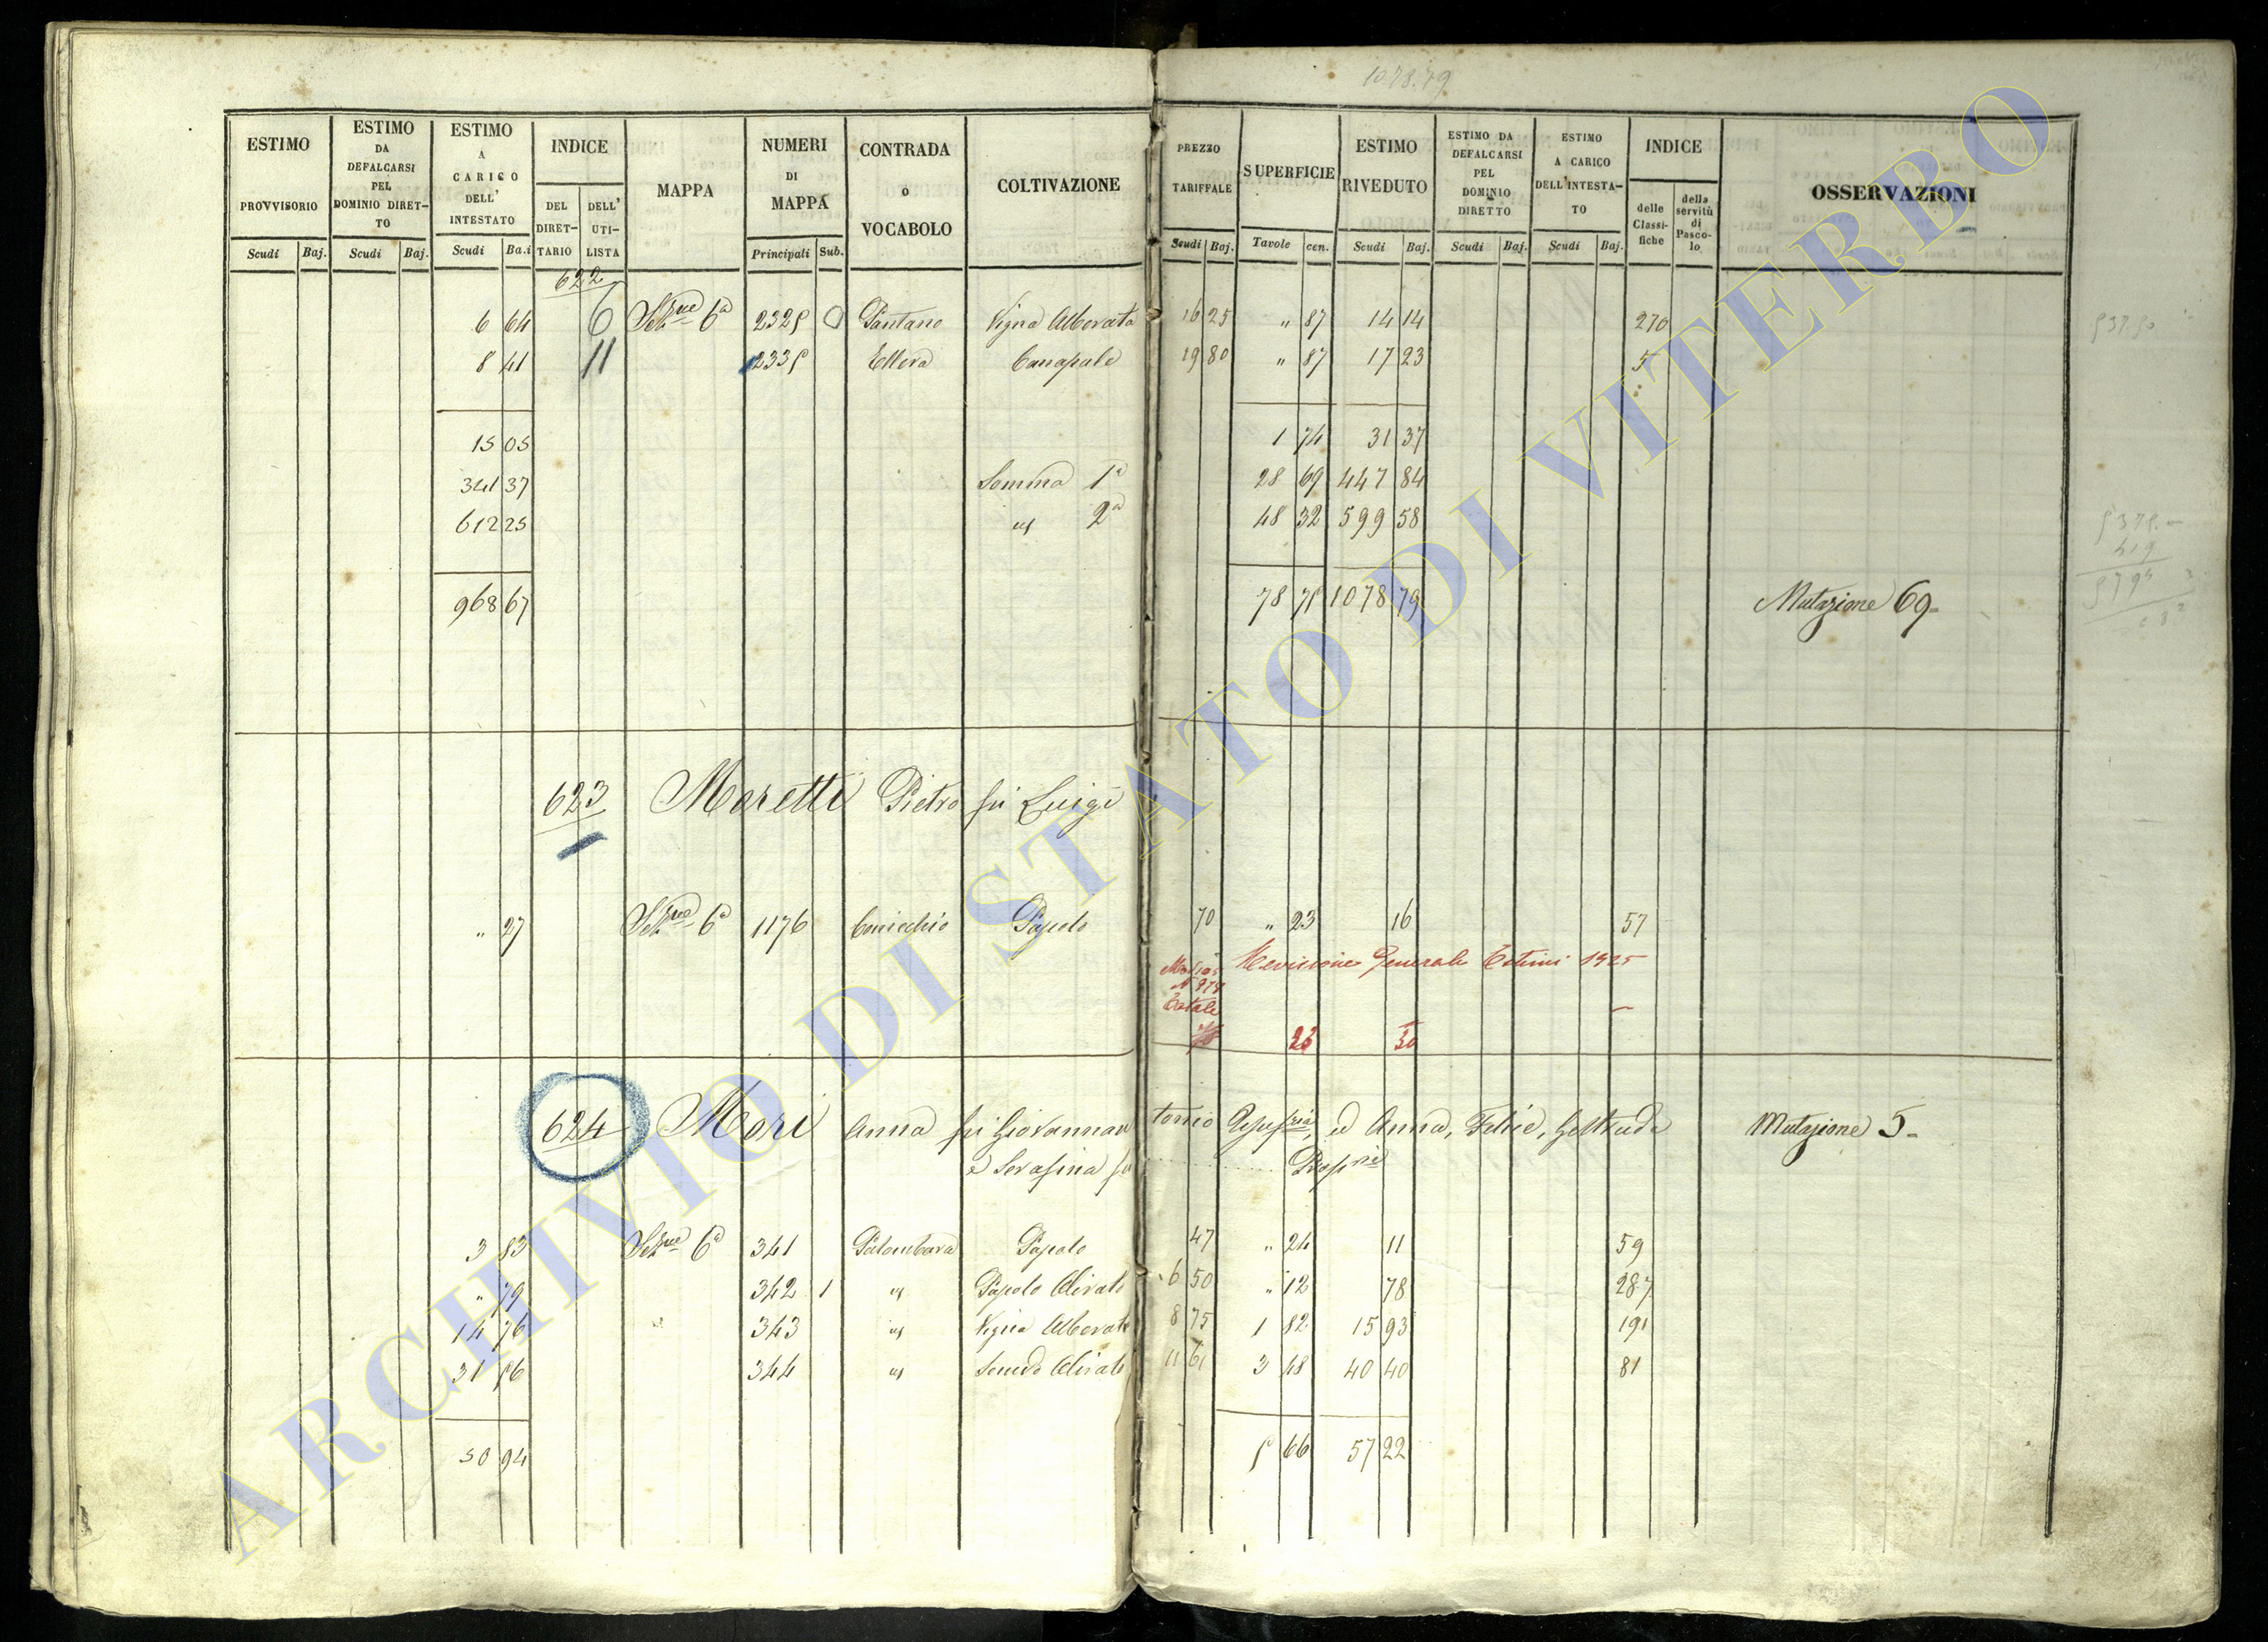 1078.79
ESTIMO PROVVISORIO
ESTIMO DA DEFALCARSI PEL DOMINIO DIRETTO
ESTIMO A CARICO DELL' INTESTATO
INDICE
DEL DIRETTARIO
DELL' UTILISTA
MAPPA
NUMERI DI MAPPA
CONTRADA O VOCABOLO
COLTIVAZIONE
PREZZO TARIFFALE
SUPERFICIE
ESTIMO RIVEDUTO
ESTIMO DA DEFALCARSI PEL DOMINIO DIRETTO
ESTIMO A CARICO DELL'INTESTATO
INDICE
delle Classifiche
della servitù di Pascolo
OSSERVAZIONI
Scudi Baj. Scudi Baj. Scudi Ba.i Principali Sub. Scudi Baj. Tavole cen. Scudi Baj. Scudi Baj. Scudi Baj.
622
6 64 6 Sezne 6a 2325 Pantano Vigna Alborata 16 25 " 87 14 14 270
8 41 11 2335 Ellera Canapale 19 80 " 87 17 23 5
15 05 1 74 31 37
341 37 Somma 1a 28 69 447 84
612 25 " 2a 48 32 599 58
968 67 78 75 1078 79 Mutazione 69
623 Moretti Pietro fu Luigi
" 27 Sezne 6a 1176 Conicchio Pascolo 70 " 23 16 57
Revisione Generale Estimi 1925
Totale
23 30
624 Mori Anna fu Giovannantonio ed Anna, Felice, Geltrude Mutazione 5
e Serafina fu
3 83 Sezne 6a 341 Palombara Pascolo 47 " 24 11 59
" 79 342 1 " Pascolo Olivato 6 50 " 12 78 287
14 76 343 " Vigna Alborata 8 75 1 82 15 93 191
31 56 344 " Semvo Olivato 11 61 3 48 40 40 81
50 94 5 66 57 22
ARCHIVIO DI STATO DI VITERBO